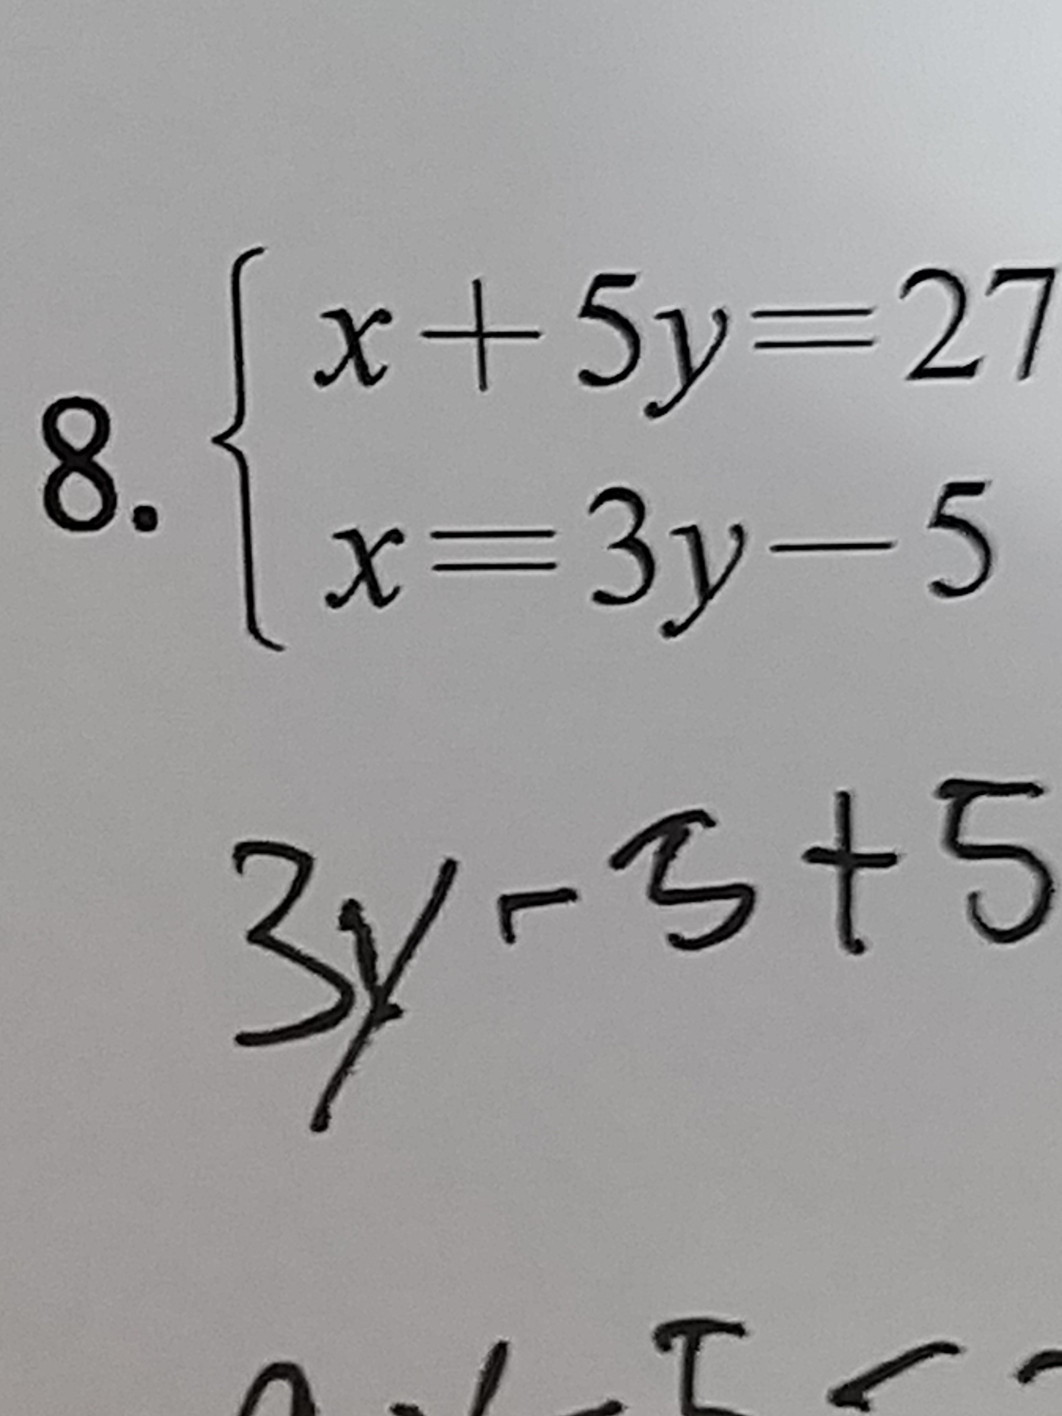 8. { x + 5y = 27
x = 3y - 5
3y - 5 + 5